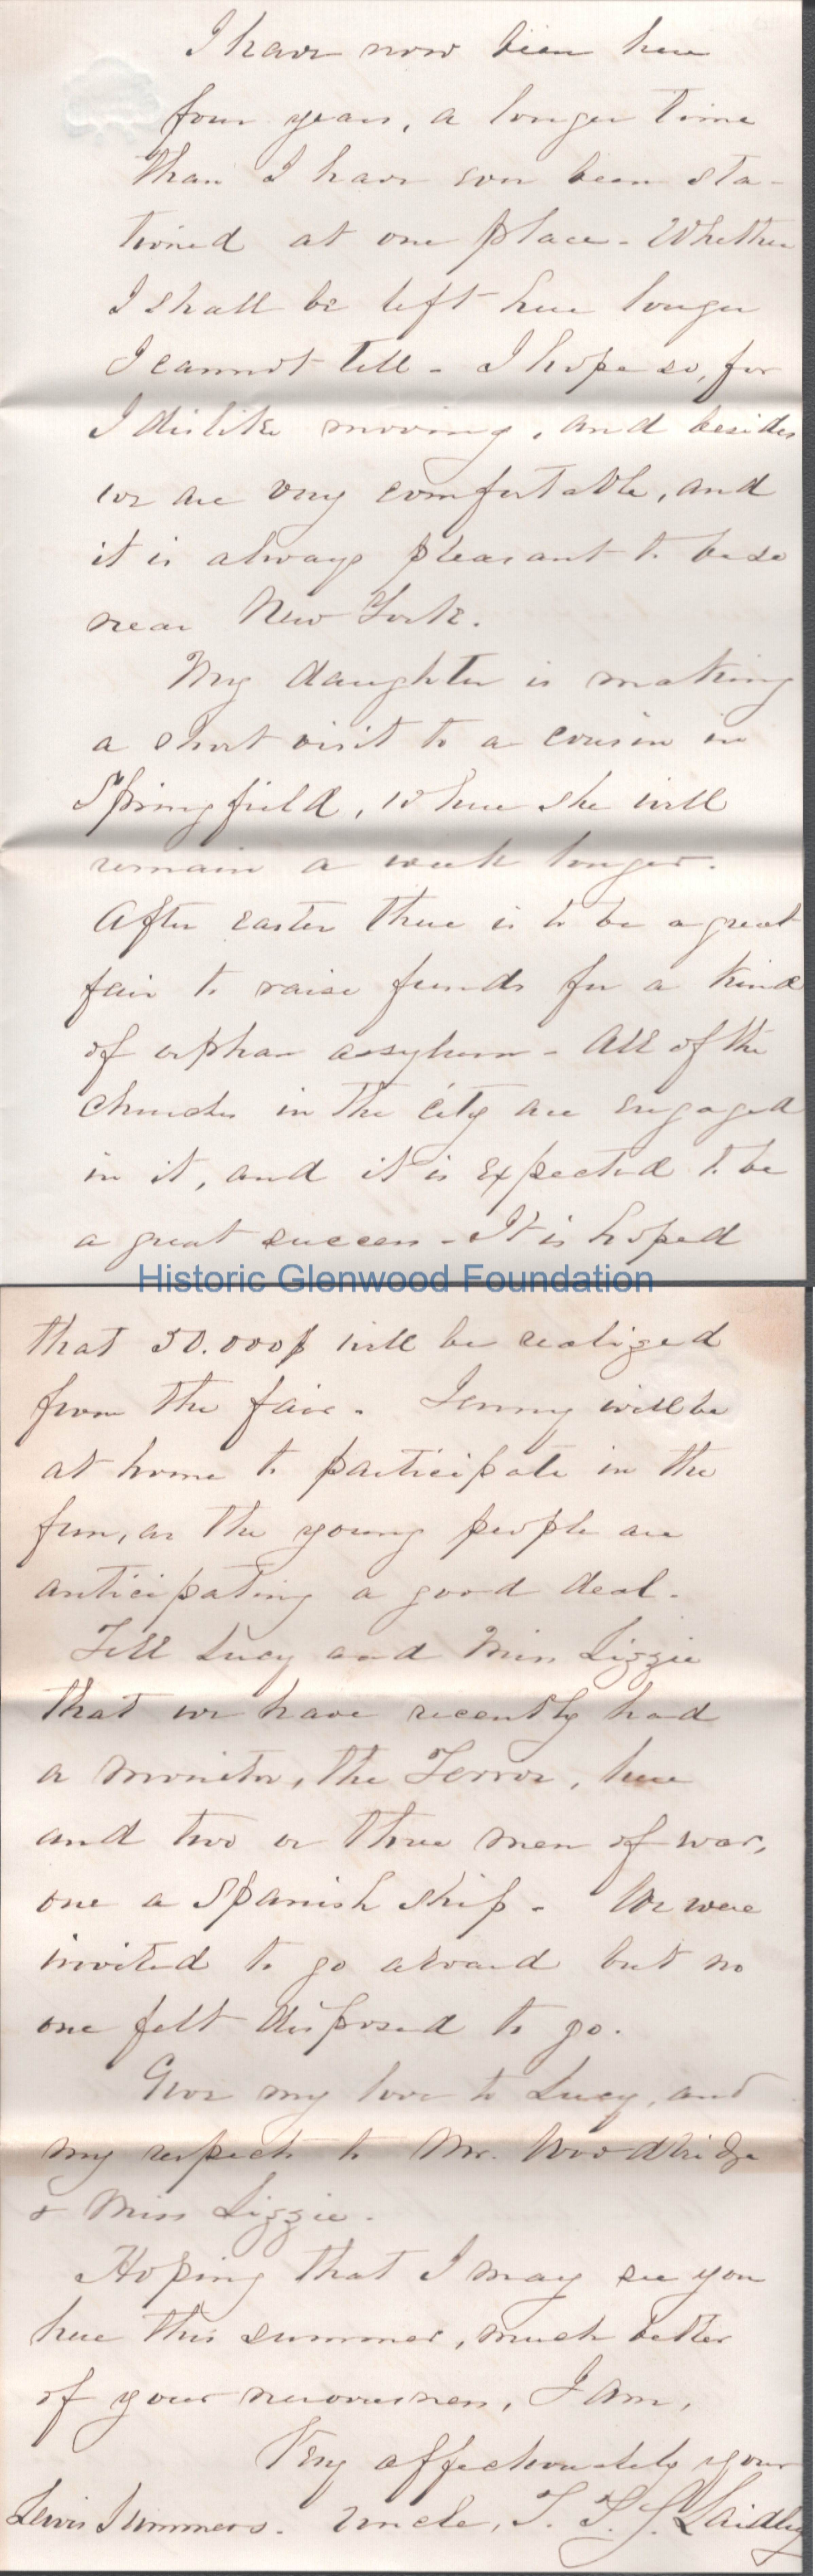 I have now been here
four years, a longer time
than I have ever been sta-
tioned at one place - Whether
I shall be left here longer
I cannot tell - I hope so, for
I dislike moving, and besides
we are very comfortable, and
it is always pleasant to be so
near New York.
My daughter is making
a short visit to a cousin in
Springfield, where she will
remain a week longer.
After easter there is to be a great
fair to raise funds for a kind
of orphan assylum - All of the
churches in the city are engaged
in it, and it is expected to be
a great success - It is hoped
Historic Glenwood Foundation
that 50.000$ will be realized
from the fair - Jenny will be
at home to participate in the
fun, as the young people are
anticipating a good deal -
Tell Lucy and Miss Lizzie
that we have recently had
a monitor, the Terror, here
and two or three men of war,
one a Spanish ship - We were
invited to go aboard but no
one felt disposed to go.
Give my love to Lucy, and
my respects to Mr. Woodbridge
& Miss Lizzie.
Hoping that I may see you
here this summer, much better
of your nervousness, I am,
Very affectionately your
Lewis Summers. Uncle, T. T. S. Laidley